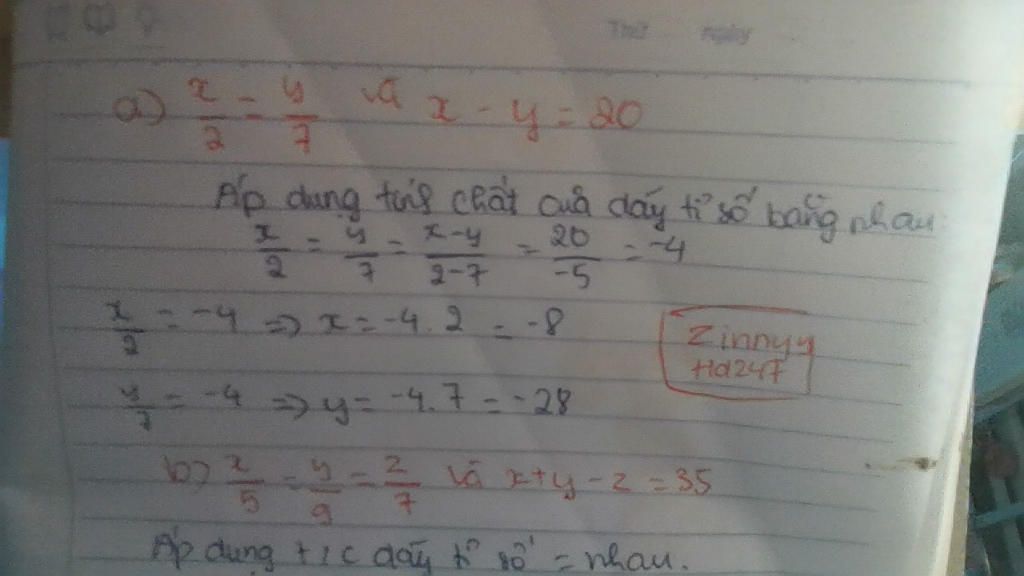 Thứ ngày
a) x/2 = y/7 và x - y = 20
Áp dụng tính chất của dãy tỉ số bằng nhau
x/2 = y/7 = x-y/2-7 = 20/-5 = -4
x/2 = -4 => x = -4.2 = -8
Zinnyy
Hd247
y/7 = -4 => y = -4.7 = -28
b) x/5 = y/9 = z/7 và x+y-z = 35
Áp dụng t/c dãy tỉ số = nhau.